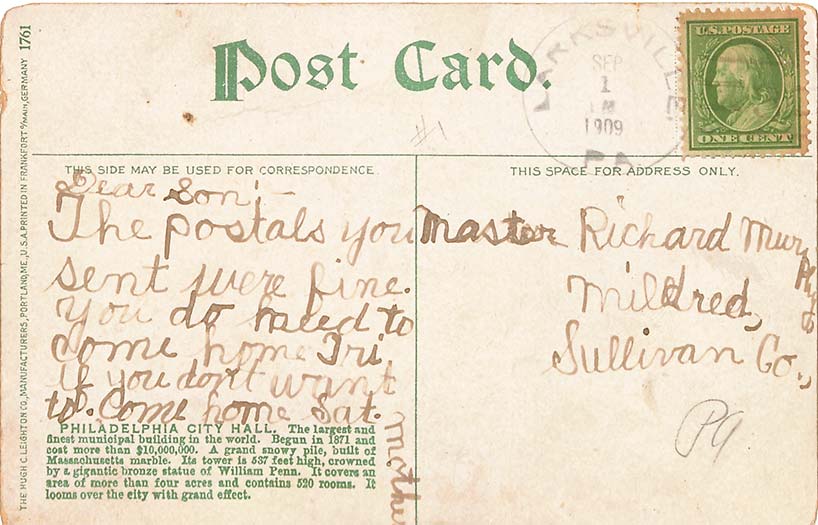 Post Card.
1761
THE HUGH C. LEIGHTON CO., MANUFACTURERS, PORTLAND, ME., U.S.A. PRINTED IN FRANKFORT o/MAIN, GERMANY
#1
LARKSVILLE
SEP
1
AM
1909
PA
U.S. POSTAGE
ONE CENT
THIS SIDE MAY BE USED FOR CORRESPONDENCE
Dear Son:—
The postals you
sent were fine.
You do need to
come home Fri.
if you don't want
to. Come home Sat.
Mother
PHILADELPHIA CITY HALL. The largest and
finest municipal building in the world. Begun in 1871 and
cost more than $10,000,000. A grand snowy pile, built of
Massachusetts marble. Its tower is 537 feet high, crowned
by a gigantic bronze statue of William Penn. It covers an
area of more than four acres and contains 520 rooms. It
looms over the city with grand effect.
THIS SPACE FOR ADDRESS ONLY.
Master Richard Mur
phy
Mildred,
Sullivan Co.,
P9